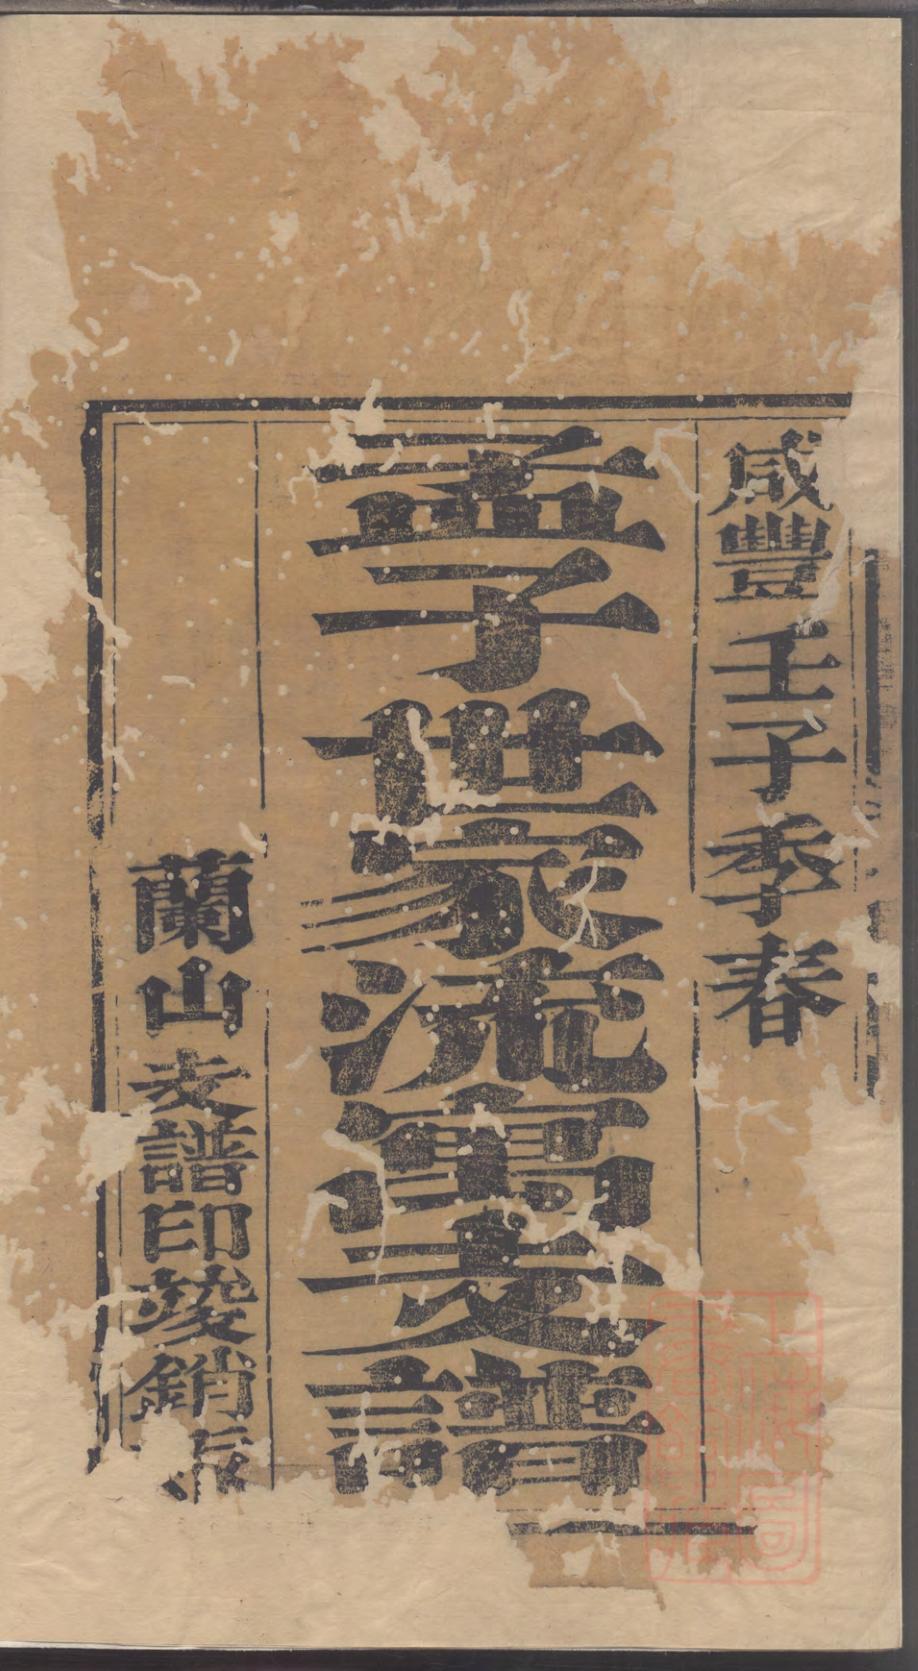 咸豐壬子季春
孟子世家流寓支譜
蘭山支譜印發銷板